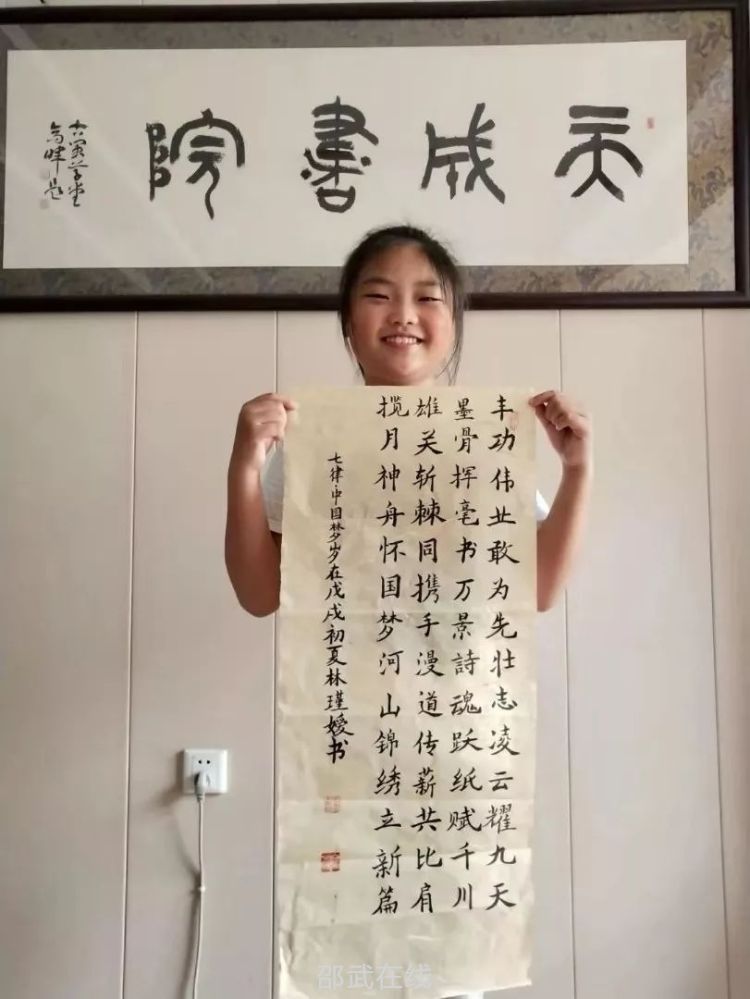 天成書院
六翼草堂
高峰题
丰功伟业敢为先壮志凌云耀九天
墨骨挥毫书万景詩魂跃纸赋千川
雄关斩棘同携手漫道传薪共比肩
揽月神舟怀国梦河山锦绣立新篇
七律·中国梦岁在戊戌初夏林瑾嫒书
邵武在线